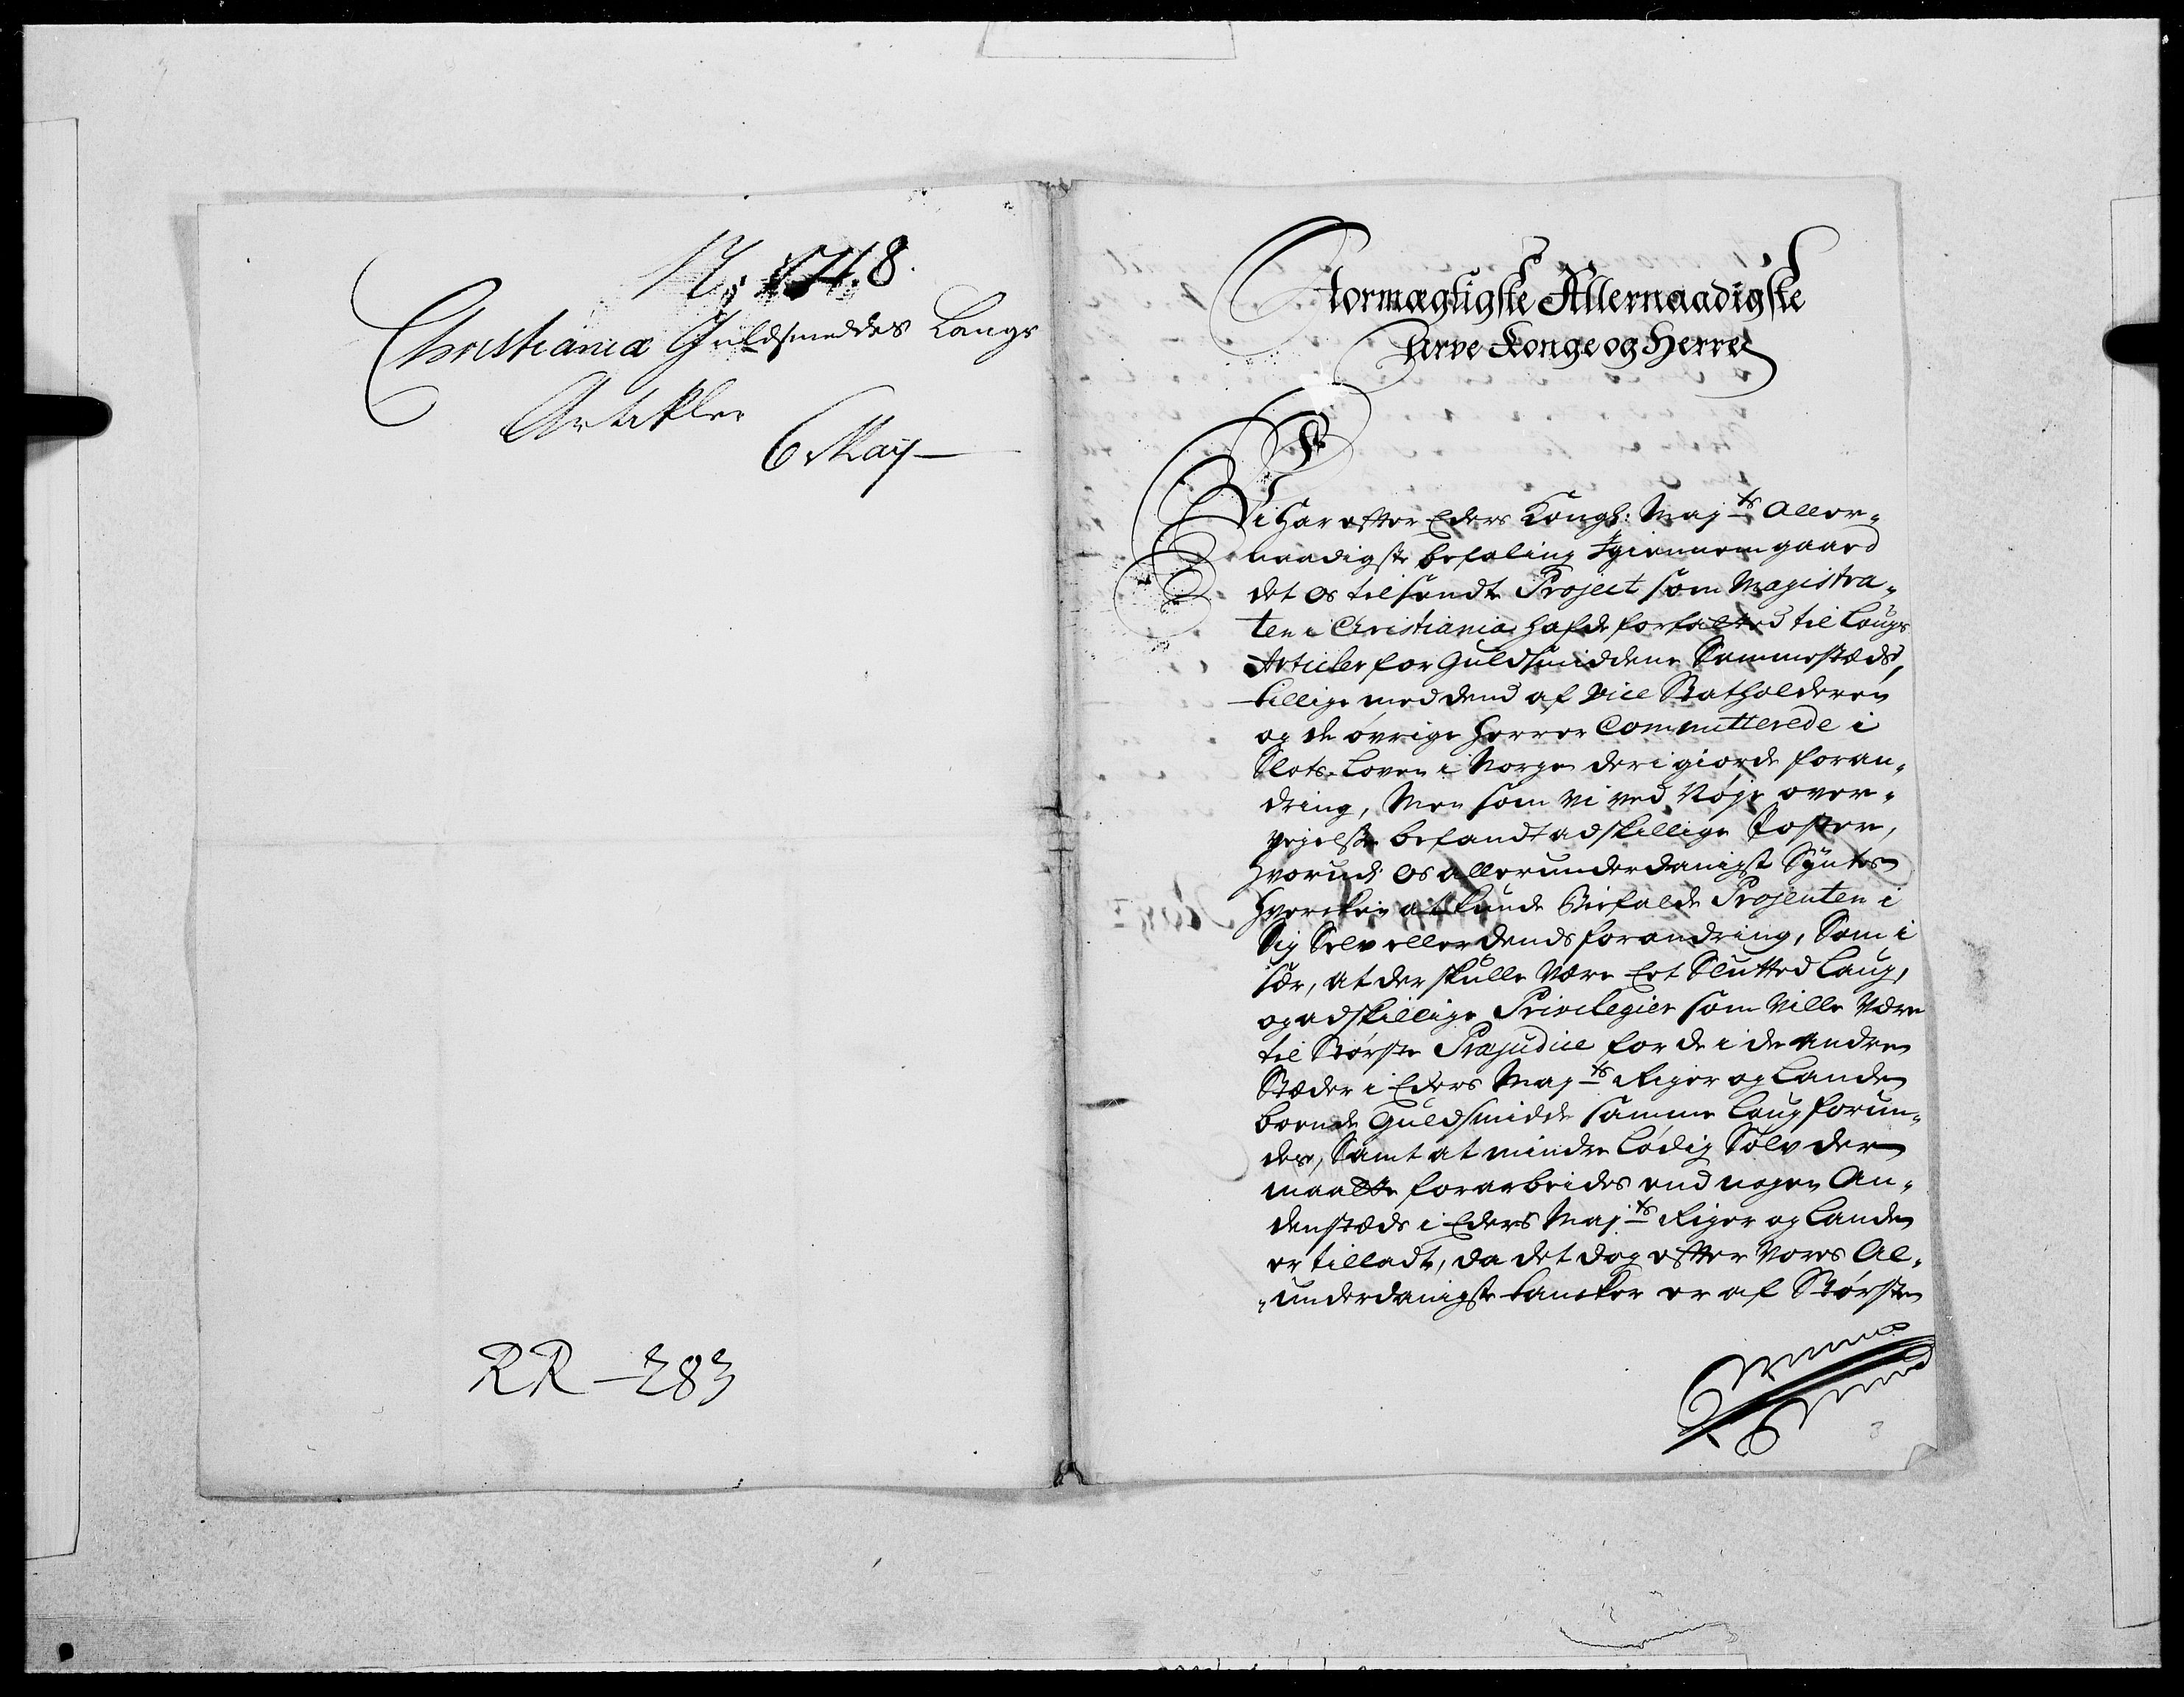 N: 148.
Christianiæ Guldsmeddes Laugs
Artikler
6 May
RR - 283
Stormægtigste Allernaadigste
Arve Konge og Herre
Vi har efter Eders Kongl: Maj ts Aller„
naadigste befaling igiennemgaaed
det os tilsendte Project som Magistra„
ten i Christiania hafde forfatted til Laugs
Articler for Guldsmiddene Sammestæds,
tillige med dend af Vice Statholderen
og de øvrige Herrer Committerede i
Slots-Loven i Norge deri giorde foran„
dring, Men som vi ved Nøje over„
vejelse befandt adskillige Poster,
hvorudj os allerunderdanigst Syntes
hvercken at kunde Biefalde Projecten i
Sig Selv eller dends forandring, Som i
sær, at der skulle være Eet Slutted Laug,
og adskillige Privilegier som Ville Være
til Største Præjudice for de i de andre
Stæder i Eders Maj ts Riger og Lande
boende Guldsmidde samme Laug forun„
des, Samt at mindre Lødig Sølv der
maatte forarbeides end nogen An„
denstæds i Eders Maj ts Riger og Lande
er tilladt, da det dog efter Vores Al„
„underdanigste tancker er af Største
3